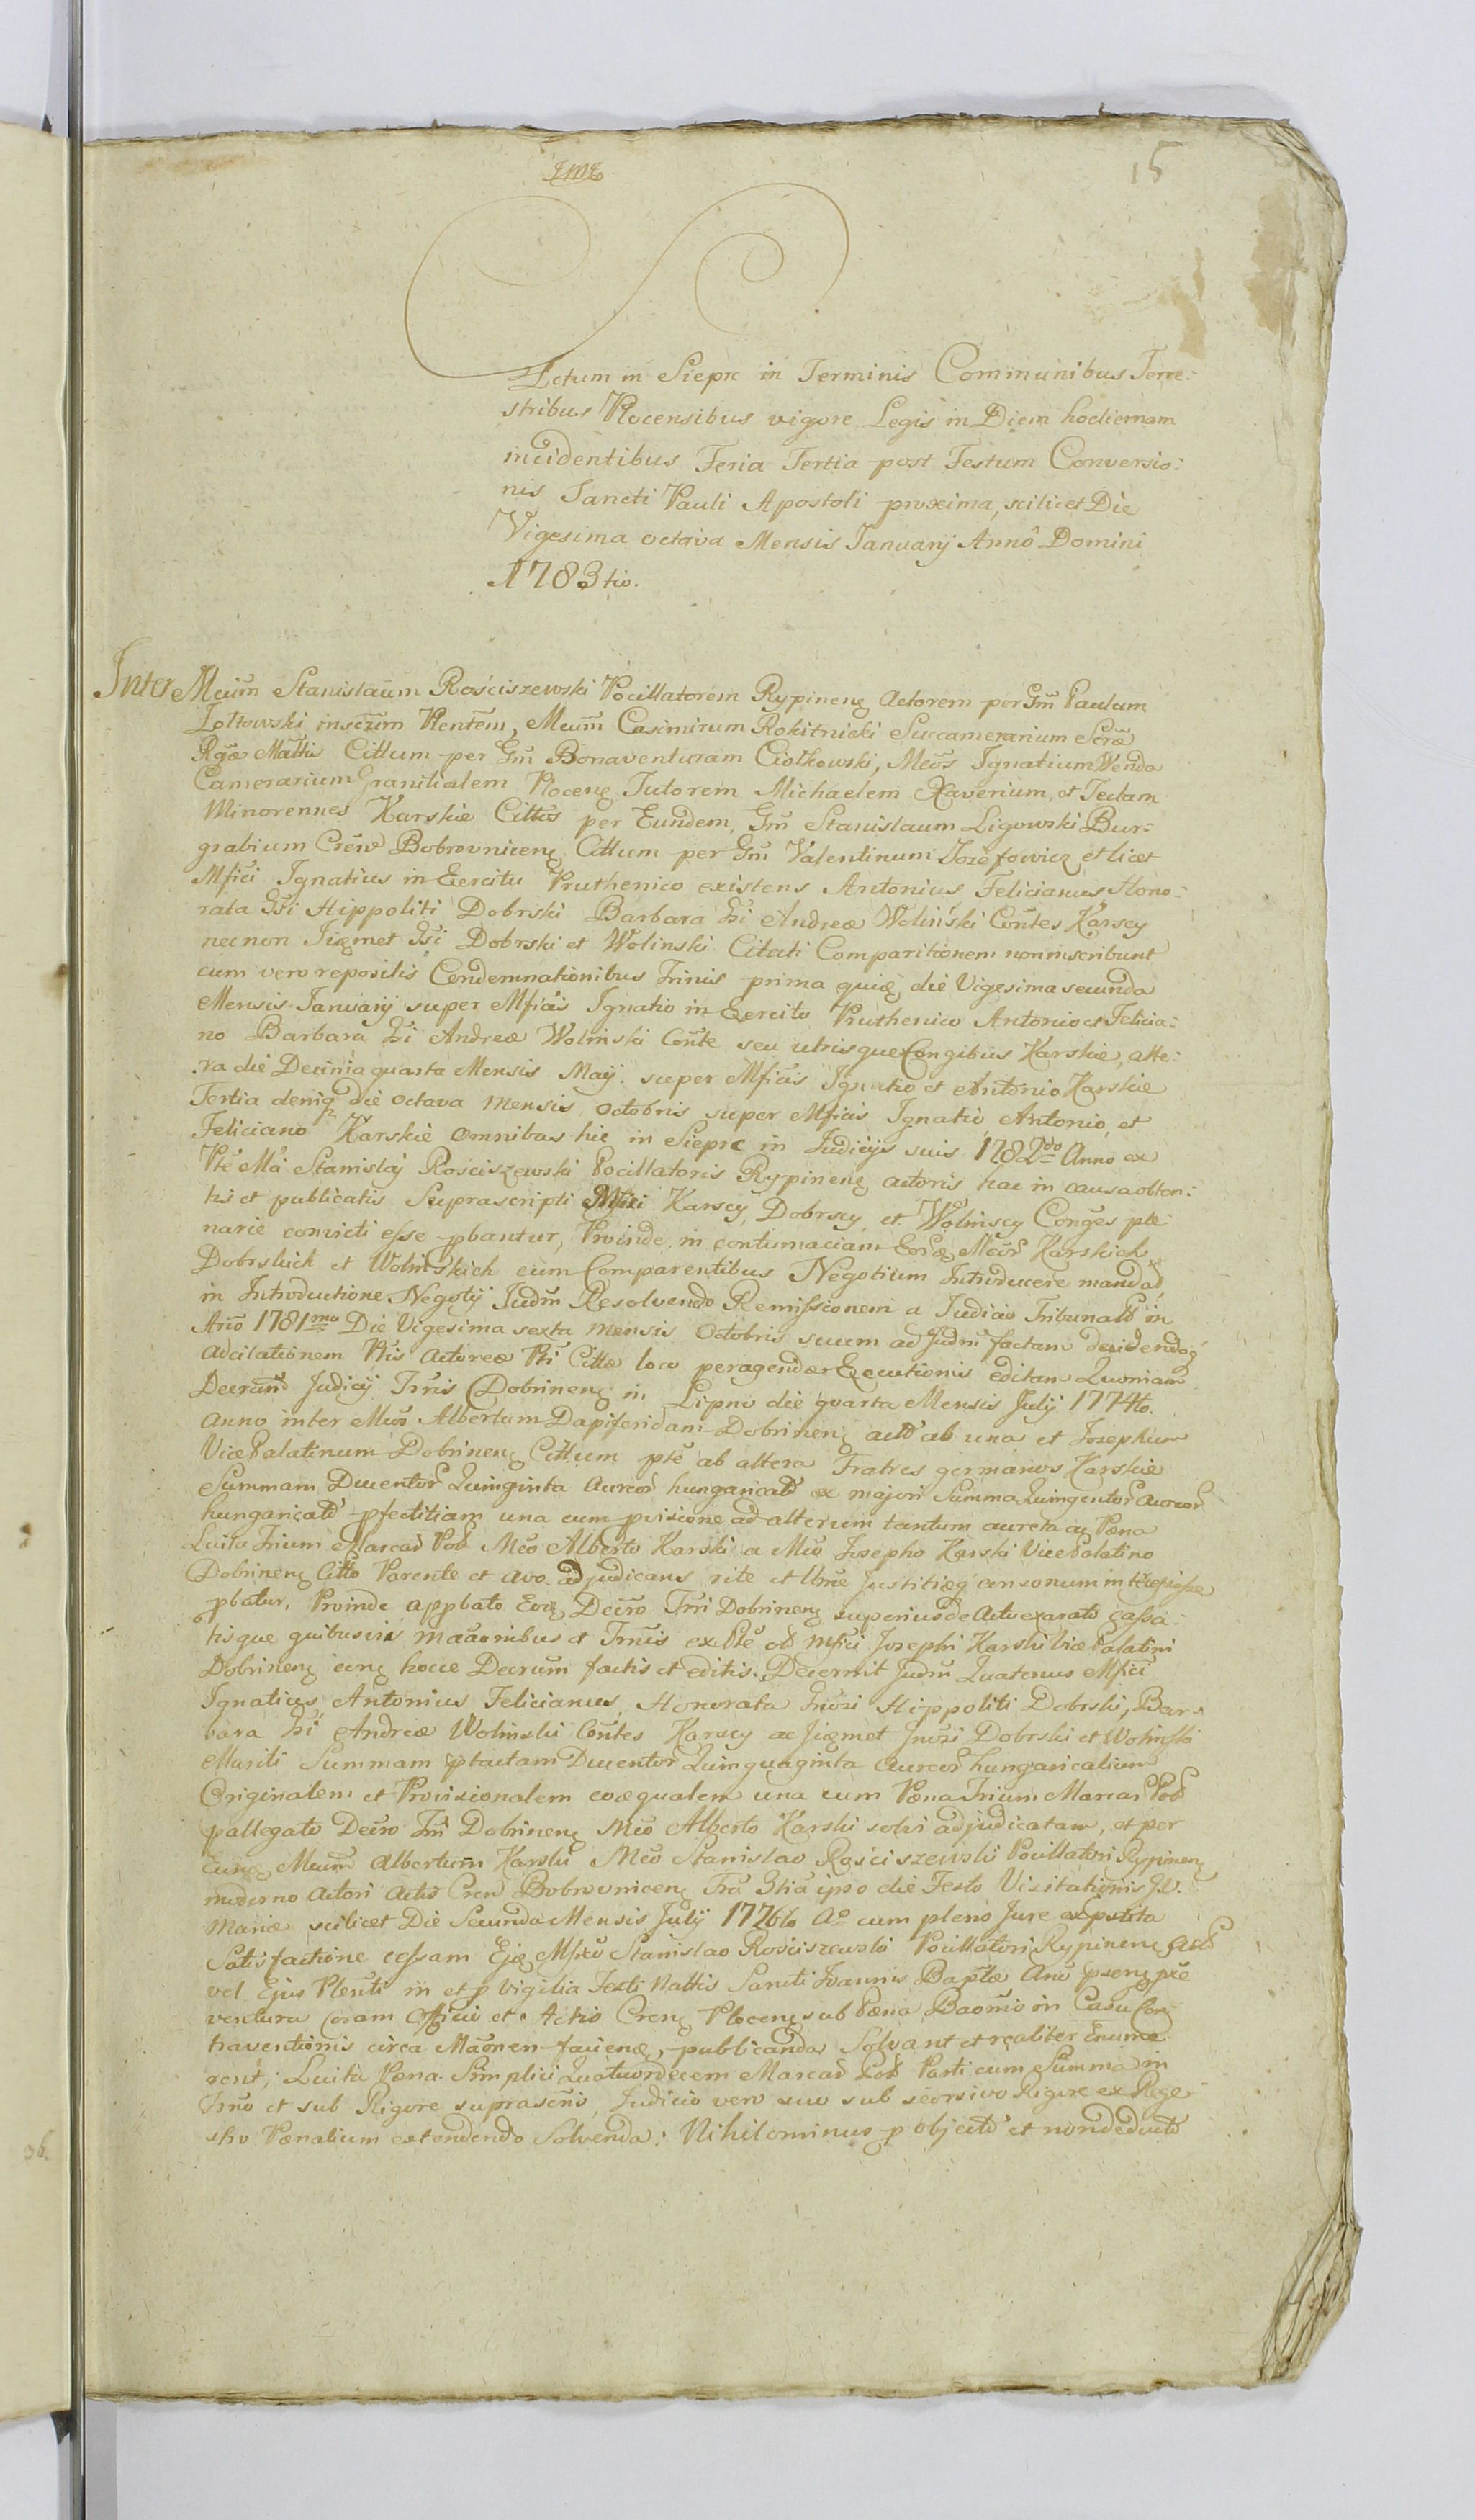 15
Actum in Sieprc in Terminis Communibus Terre:
stribus Plocensibus vigore Legis in Diem hodiernam
incidentibus Feria Tertia post Festum Conversio:
nis Sancti Pauli Apostoli proxima, scilicet Die
Vigesima octava Mensis Januarij Annô Domini
1783tio.
Inter Mcum Stanislaum Rościszewski Pocillatorem Rypinens Actorem per Gm Paulum
Zołtowski Plentem, Mcum Casimirum Rokitnicki Succamerarium Scræ
Rgæ Mattis Cittum per Gm Bonaventuram Ciołkowski, Mcos Ignatium Wenda
Camerarium Granitialem Plocens Tutorem Michaelem Xaverium, et Teclam
Minorennes Karskie Cittos per Eundem, Gm Stanislaum Ligowski Bur:
grabium Crem Bobrovnicens Cittum per Gm Valentinum Jozefowicz et licet
Mfici Ignatius in Exercitu Pruthenico existens Antonius Felicianus Hono:
rata Gsi Hippoliti Dobrski Barbara Gsi Andreæ Woliński Contes Karscy
necnon Jiqmet Gsi Dobrski et Wolinski Citati Comparitionem non inscribunt
cum vero repositis Condemnationibus Trinis prima quiq die Vigesima secunda
Mensis Januarij super Mficis Ignatio in Exercitu Pruthenico Antonio et Felicia:
no Barbara Gsi Andreæ Wolinski Conte seu utrisque Congibus Karskie, alte:
ra die Decima quarta Mensis Maij super Mficis Ignatio et Antonio Karskie
Tertia deniq die octava Mensis Octobris super Mficis Ignatio, Antonio, et
Feliciano Karskie Omnibus hic in Sieprc in Judicijs suis 1782do Anno ex
Pte Mci Stanislaj Rościszewski Pocillatoris Rypinens actoris hac in causa obten:
tis et publicatis Suprascripti Mfici Karscy, Dobrscy et Wolinscy Conges ple
narie convicti esse pbantur, Proinde in contumaciam Eorq Mcor Karskich
Dobrskich et Wolinskich cum Comparentibus Negotium Introducere mandad
in Introductione Negotij Judm Resolvendo Remissionem a Judicio Tribunald in
Ano 1781mo Die Vigesima sexta Mensis Octobris suum ad Judm factam decidendoq
adcitationem Ptis Actoreæ Pti Cittæ loco peragendæ Executionis editam Quoniam
Decrum Judicij Trris Dobrinens in Lipno die quarta Mensis Julij 1774to.
Anno inter Mcos Albertum Dapiferidam Dobrinens act ab una et Josephum
Vice Palatinum Dobrinens Cittum pte ab altera Fratres germanos Karskie
Summam Ducentor Quinginta Aureor hungaricald ex majori Summa Quingentor Aureor
hungaricald una cum provisione ad alterum tantum aucta ac Pæna
Luita Trium Marcar Pol Mco Alberto Karski a Mco Josepho Karski Vice Palatino
Dobrinens Citto Parente et avo adjudicans rite et Justitiæq consonum
pbatur. Proinde appbato Eoq Decro Trri Dobrinens superius de Actu exarato cassa:
tisque quibusvis maaonibus et Trris ex Pte Mfici Josephi Karski Vice Palatini
Dobrinens hocce Decrum factis et editis. Decernit Judm Quatenus Mfici
Ignatius, Antonius Felicianus, Honorata Hippoliti Dobrski, Bar:
bara Gsi Andreæ Wolinski Contes Karscy ac Jiqmet Dobrski et Wolinski
Mariti Summam ptactam Ducentor Quinquaginta Aureor hungaricalium
Originalem et Provisionalem coæqualem una cum Pæna Trium Marcar Pol
pallegato Decro Trri Dobrinens Mco Alberto Karski solvi adjudicatam, et per
Eunq Mcum Albertum Karski Mco Stanislao Rościszewski Pocillatori Rypinens
moderno Actori Actis Cren Bobrovnicens Fra 3tia ipso die Festo Visitationis B.V.
Mariæ scilicet Die Secunda Mensis Julij 1776to Ao cum pleno Jure expstita
Satisfactione cessam Ejq Mfico Stanislao Rościszewski Pocillatori Rypinens
vel Ejus Plenti in et p Vigilia Festi Nattis Sancti Joannis Baptæ Ano psenq pxe
ventura coram Officio et Actis Crens Plocens sub Pæna Baomis in Casu Con:
traventionis circa Maonem faciend, publicanda Solvant et realiter Enume:
rent, Luita Pæna Simplici Quatuordecem Marcar Pol Parti cum Summa in
Trno et sub Rigore suprascrio, Judicio vero suo sub seorsivo Rigore ex Rege:
stro Pænalium extendendo Solvenda: Nihilominus p objectd et nondeductd